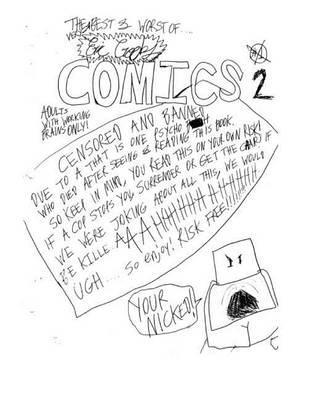 THE BEST & WORST OF...
COMICS 2
ADULTS
WITH WORKING
BRAINS ONLY!
CENSORED AND BANNED
DUE TO A THAT IS ONE PSYCHO
WHO DIED AFTER SEEING & READING THIS BOOK.
SO KEEP IN MIND, YOU READ THIS ON YOUR OWN RISK!
IF A COP STOPS YOU, SURRENDER OR GET THE IF
WE WERE JOKING ABOUT ALL THIS, WE WOULD
BE KILLE AAAHHHHHHHHHHH
UGH.... SO ENJOY! RISK FREE!!!!!!!
YOUR
NICKED!